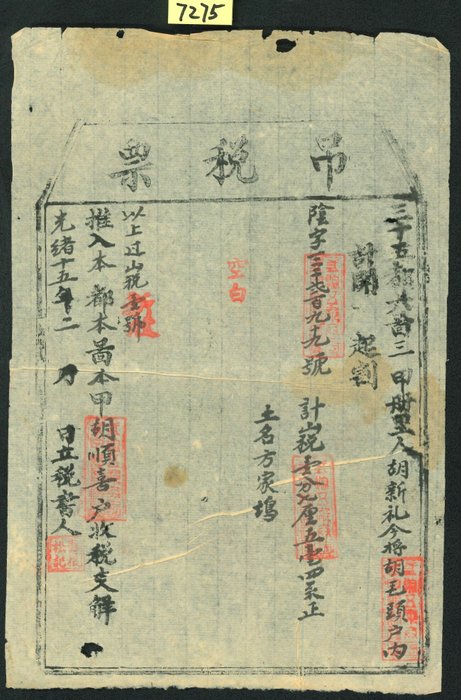 7275
吊税票
三十五都六啚三甲册里人胡新礼今將胡毛頭户内
計開 起割
陰字三千弍百九十九號 計山税壹分九厘五毛四系正
空白
土名方家塢
以上过山税壹號
推入本都本啚本甲胡順喜户收税支解
光緒十五年二月 日立税書人